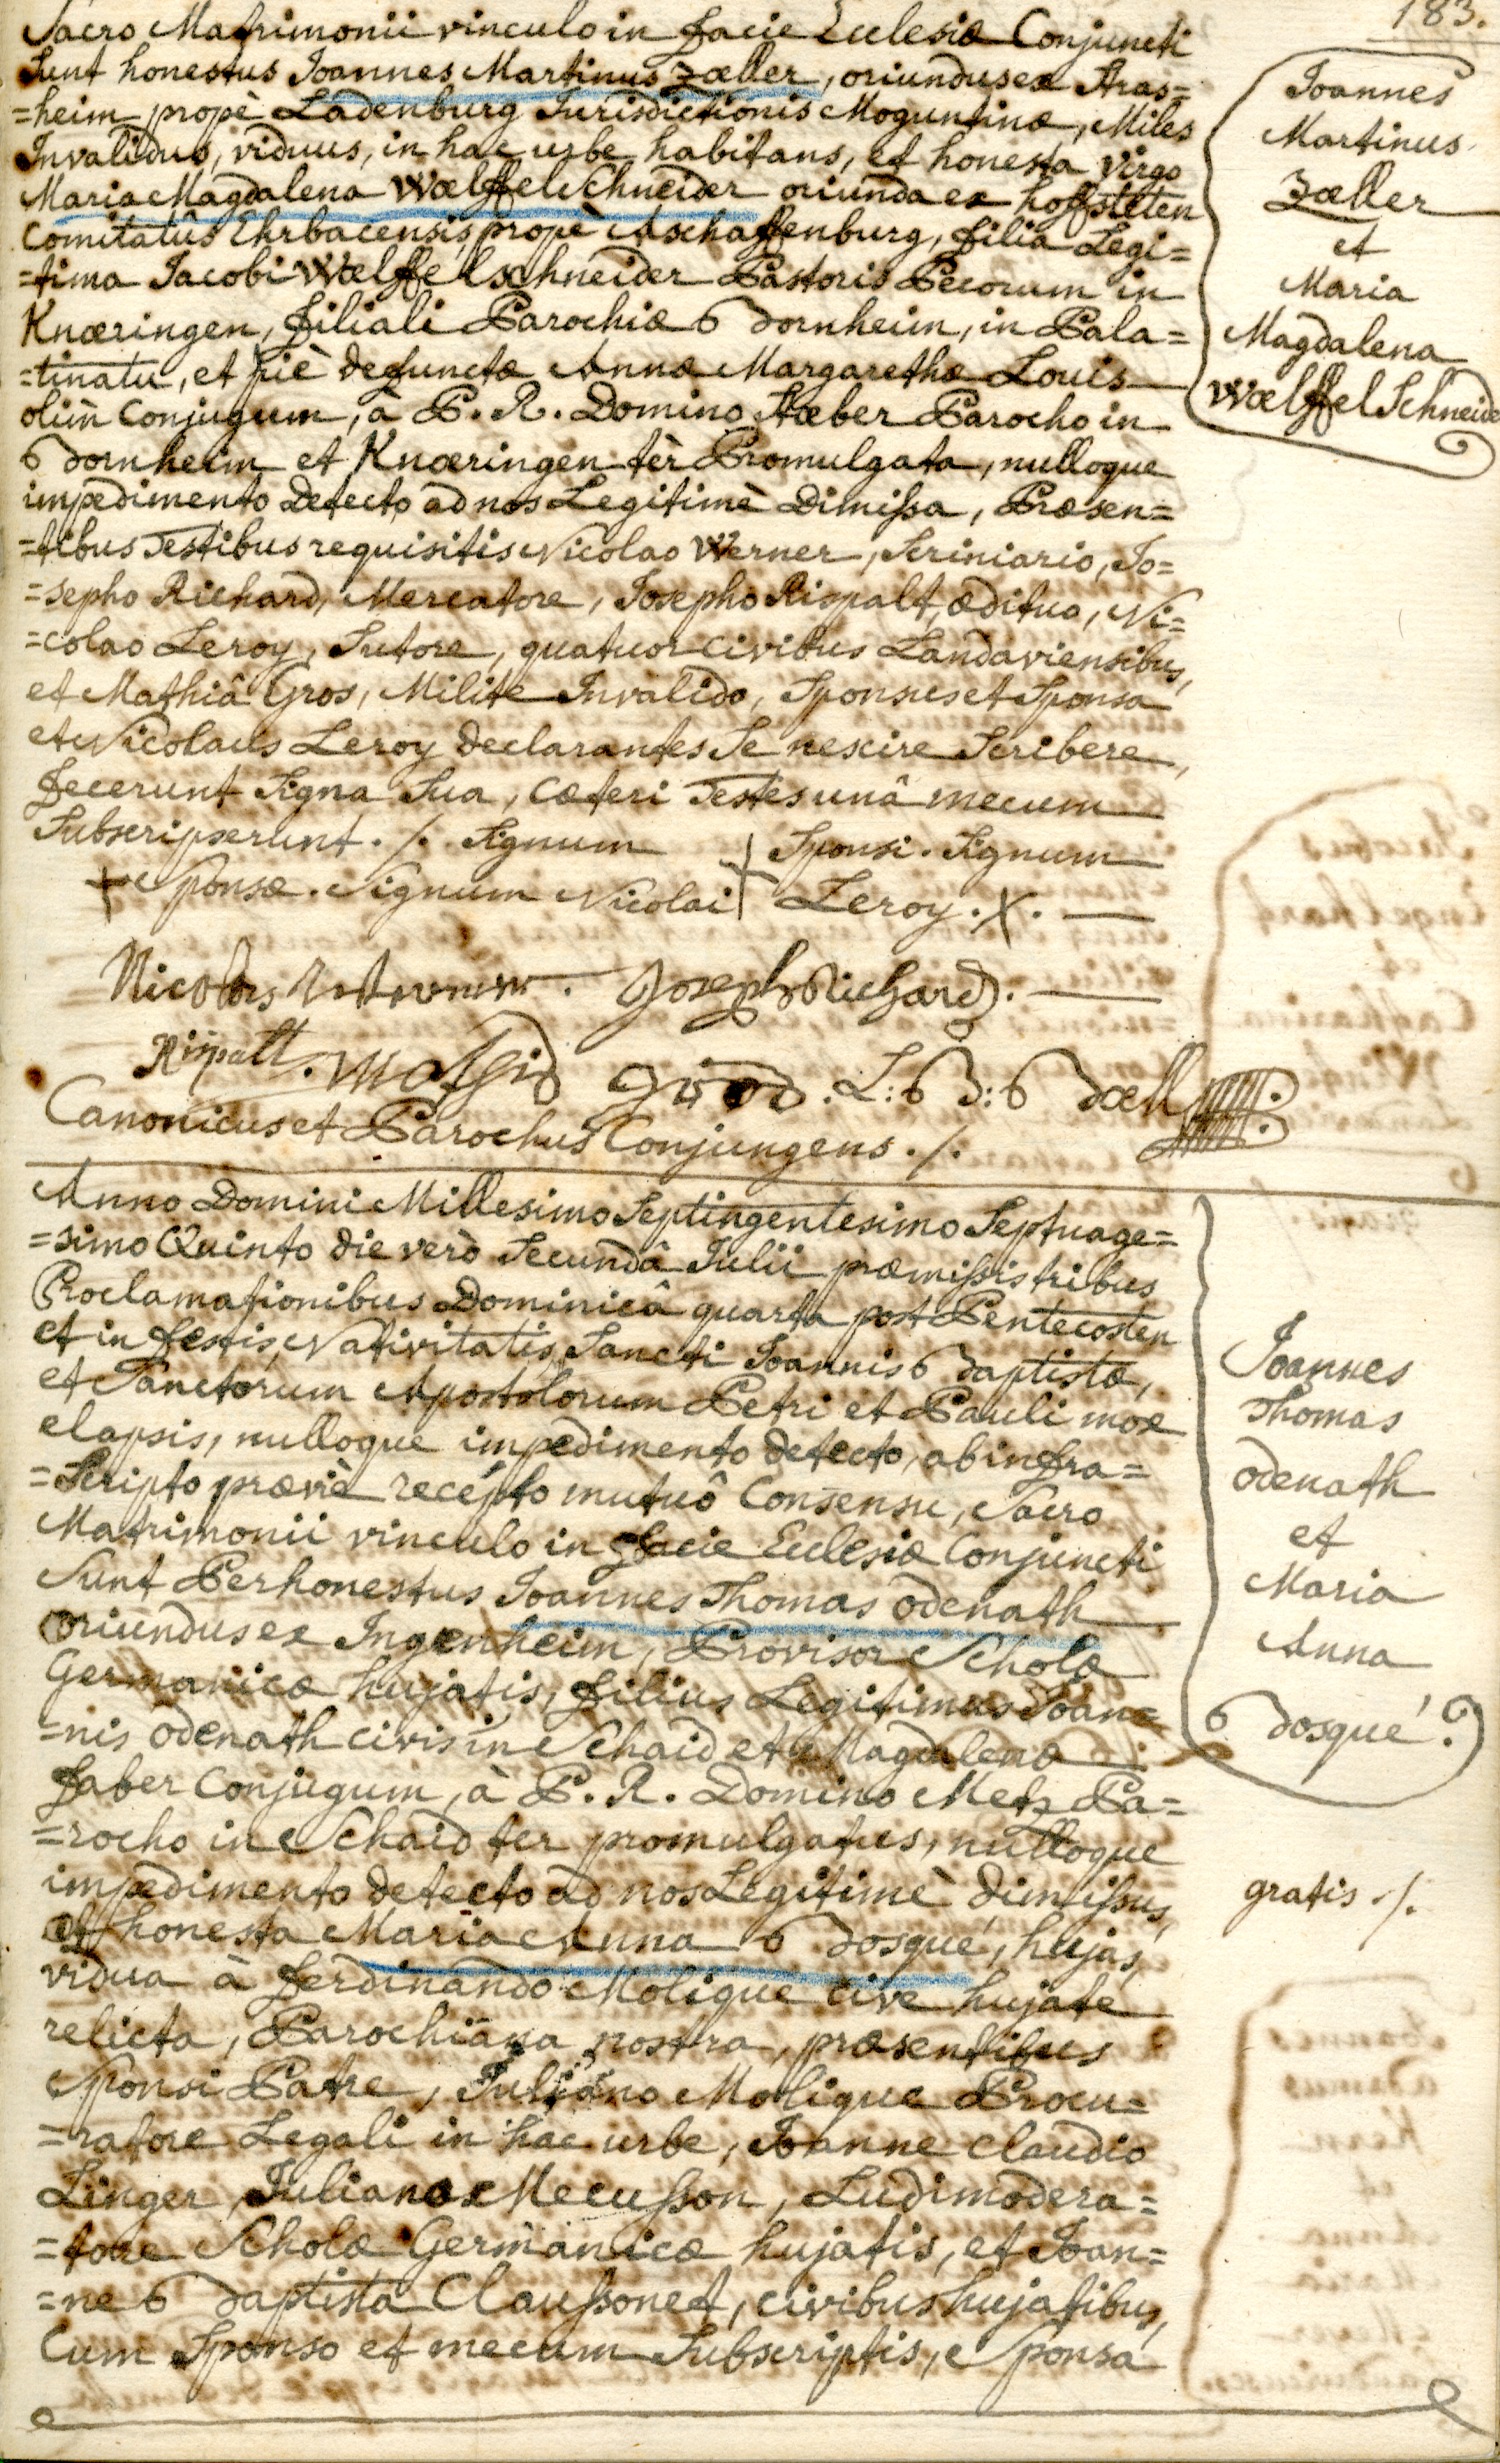 183.
Sacro Matrimonii vinculo in facie Ecclesiæ Conjuncti
Sunt honestus Joannes Martinus Zæller, oriundus ex Stras=
=heim propè Ladenburg Jurisdictionis Moguntinæ, Miles
Invalidus, viduus, in hac urbe habitans, et honesta virgo
Maria Magdalena WælffelSchneider oriunda ex hoffsteten
Comitatûs Ehrbacensis propè Aschaffenburg, filia Legi=
=tima Jacobi Wælffelschneider Pastoris Pecorum in
Knœringen, filiali Parochiæ Bornheim, in Pala=
=tinatu, et piè defunctæ Annæ Margarethæ Louis
olim Conjugum, à P. R. Domino Stæber Parocho in
Bornheim et Knœringen tèr Promulgata, nulloque
impedimento Detecto ad nos Legitimè Dimissa, Præsen=
=tibus Testibus requisitis Nicolao Werner, Scriniario, Jo=
=sepho Richard, Mercatore, Josepho Rispalt, ædituo, Ni=
=colao Leroy, Sutore, quatuor civibus Landaviensibus,
et Mathiâ Gros, Milite Invalido, Sponsus et Sponsa
et Nicolaus Leroy declarantes Se nescire Scribere,
fecerunt Signa Sua, Cæteri Testes unâ mecum
Subscripserunt ./. Signum + Sponsi. Signum
+ Sponsæ. Signum Nicolai Leroy. X.
Nicolas Joseph Richard.
Rispalt. L: B: Bæll
Canonicus et Parochus Conjungens ./.
Joannes
Martinus
Zæller
et
Maria
Magdalena
WælffelSchneide
Anno Domini Millesimo Septingentesimo Septuage=
=simo Quinto die verò Secundâ Julii præmissis tribus
Proclamationibus Dominicâ quarta post Pentecosten
et in festis Nativitatis Sancti Joannis Baptistæ,
et Sanctorum Apostolorum Petri et Pauli mox
elapsis, nulloque impedimento detecto, ab infra=
=Scripto præviè recépto mutuô Consensu, Sacro
Matrimonii vinculo in facie Ecclesiæ Conjuncti
Sunt Perhonestus Joannes Thomas odenath
oriundus ex Ingenheim, Provisor Scholæ
Germanicæ hujatis, filius Legitimus Joan=
=nis odenath civis in Schaid et Magdalenæ
faber Conjugum, à P. R. Domino Metz Pa=
=rocho in Schaid ter promulgatus, nulloque
impedimento detecto ad nos Legitimè dimissus,
et honesta Maria Anna Bosqué, hujas,
vidua à ferdinando Molique cive hujate
relicta, Parochiana nostra, præsentibus
Sponsi Patre, Juliano Molique Procu=
=ratore Legali in hac urbe, Joanne Claudio
Linger, Juliano Mecusson, Ludimodera=
=tore Scholæ Germanicæ hujatis, et Joan=
=ne Baptista Claussonet, civibus hujatibus,
Cum Sponso et mecum Subscriptis, Sponsa
Joannes
Thomas
odenath
et
Maria
Anna
Bosqué.
gratis ./.